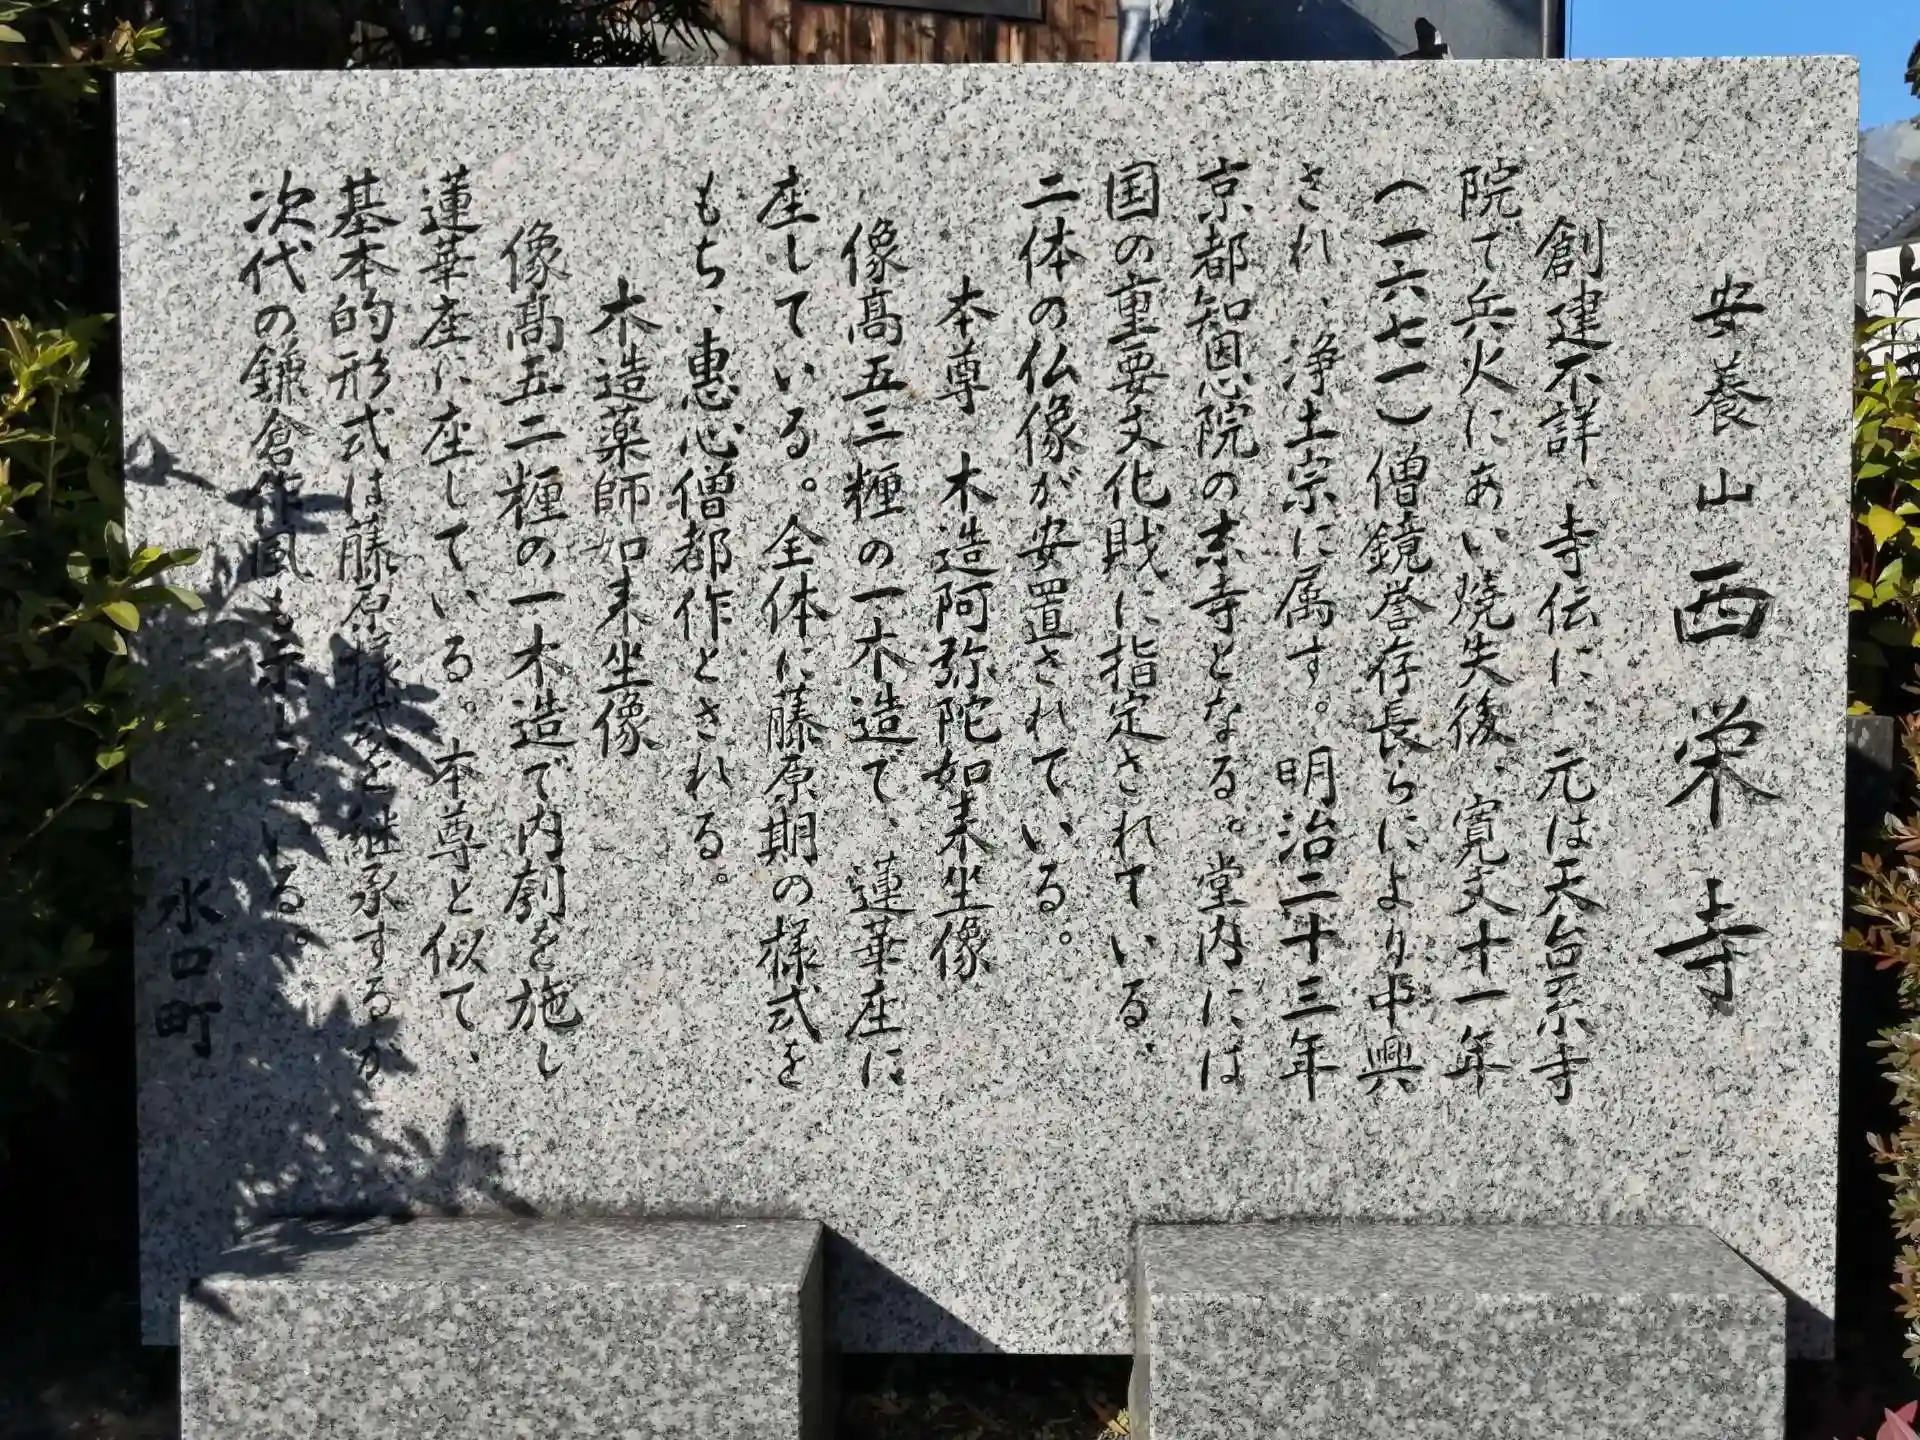 安養山西栄寺
創建不詳、寺伝に、元は天台系寺
院で兵火にあい焼失後、寛文十一年
(一六七一)僧鏡誉存長らにより中興
され、浄土宗に属す。明治二十三年
京都知恩院の末寺となる。堂内には
国の重要文化財に指定されている、
二体の仏像が安置されている。
本尊 木造阿弥陀如来坐像
像髙五三糎の一木造で、蓮華座に
座している。全体に藤原期の様式を
もち、恵心僧都作とされる。
木造薬師如来坐像
像髙五二糎の一木造で内刳を施し
蓮華座に座している。本尊と似て、
基本的形式は藤原様式を継承するが
次代の鎌倉作風も示している。
水口町